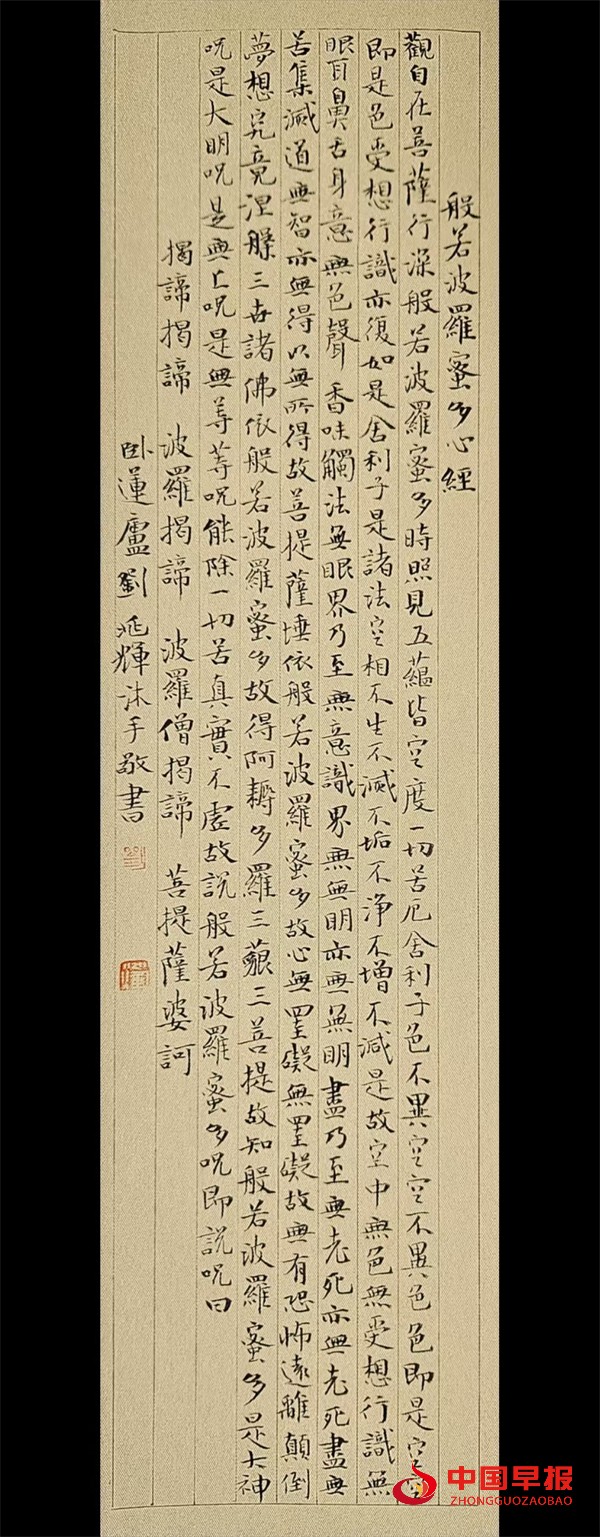 般若波羅蜜多心經
觀自在菩薩行深般若波羅蜜多時照見五蘊皆空度一切苦厄舍利子色不異空空不異色色即是空空
即是色受想行識亦復如是舍利子是諸法空相不生不滅不垢不淨不增不減是故空中無色無受想行識無
眼耳鼻舌身意無色聲香味觸法無眼界乃至無意識界無無明亦無無明盡乃至無老死亦無老死盡無
苦集滅道無智亦無得以無所得故菩提薩埵依般若波羅蜜多故心無罣礙無罣礙故無有恐怖遠離顛倒
夢想究竟涅槃三世諸佛依般若波羅蜜多故得阿耨多羅三藐三菩提故知般若波羅蜜多是大神
呪是大明呪是無上呪是無等等呪能除一切苦真實不虛故說般若波羅蜜多呪即說呪曰
揭諦揭諦 波羅揭諦 波羅僧揭諦 菩提薩婆訶
卧蓮廬劉輝沐手敬書
中国早报
ZHONGGUOZAOBAO